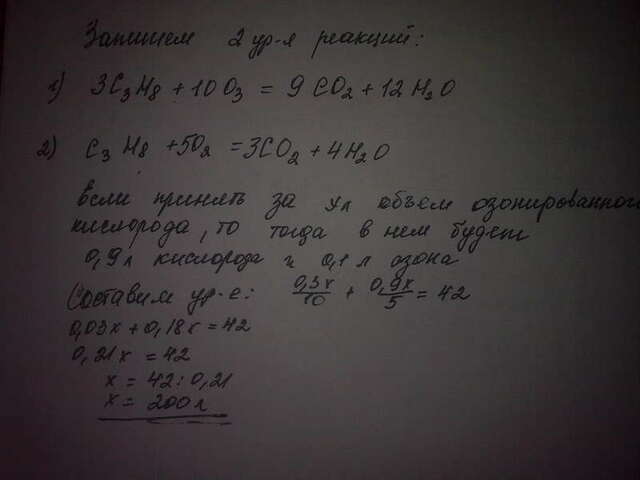 Запишем 2 ур-я реакций:
1) 3C₃H₈ + 10O₃ = 9CO₂ + 12H₂O
2) C₃H₈ + 5O₂ = 3CO₂ + 4H₂O
Если принять за xл объем озонированного
кислорода, то тогда в нем будет
0,9л кислорода и 0,1л озона
Составим ур-е: 0,3x/10 + 0,9x/5 = 42
0,03x + 0,18x = 42
0,21x = 42
x = 42 : 0,21
x = 200л